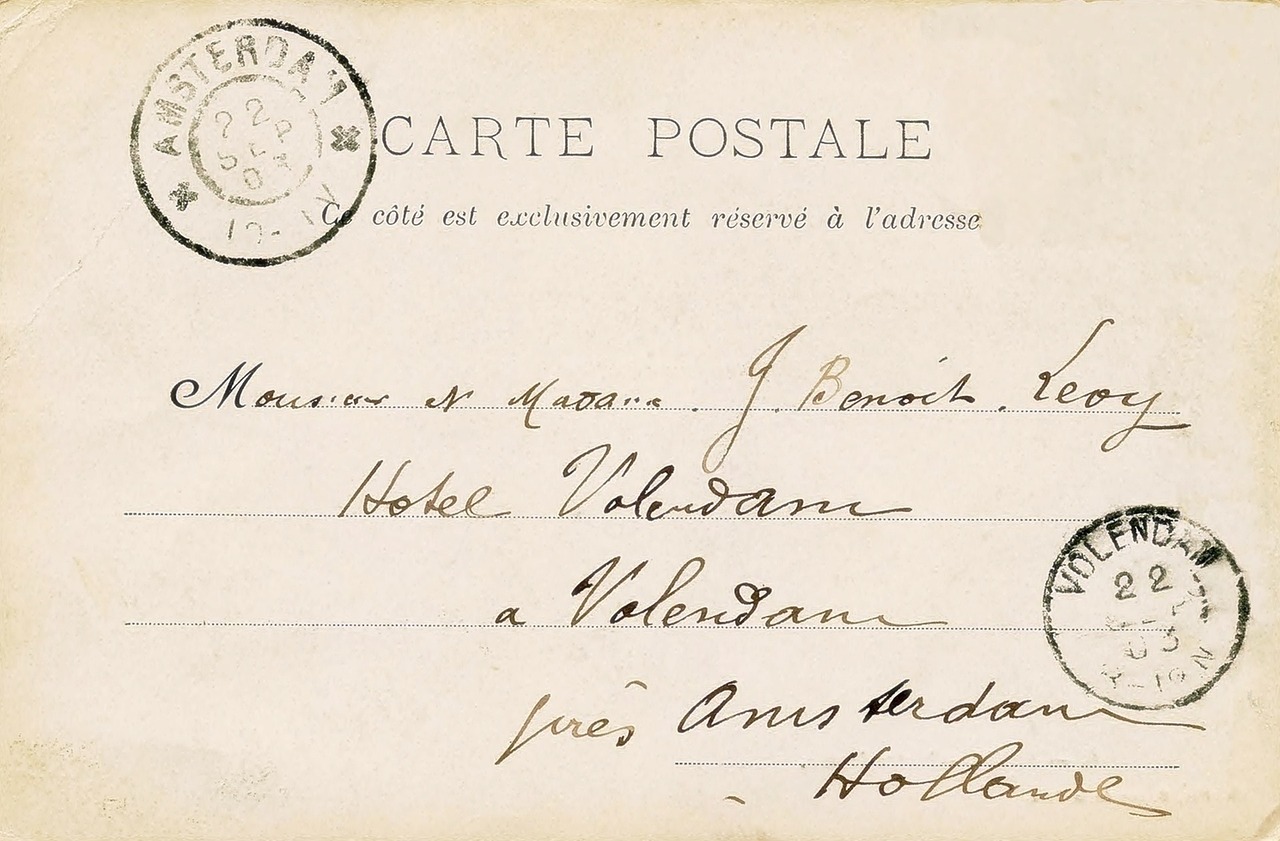 AMSTERDAM
22
SEP
03
CARTE POSTALE
Ce côté est exclusivement réservé à l'adresse
Monsieur et Madame J. Benoit. Levy
Hotel Volendam
VOLENDAM
22
03
8-10 N
a Volendam
près Amsterdam
Hollande